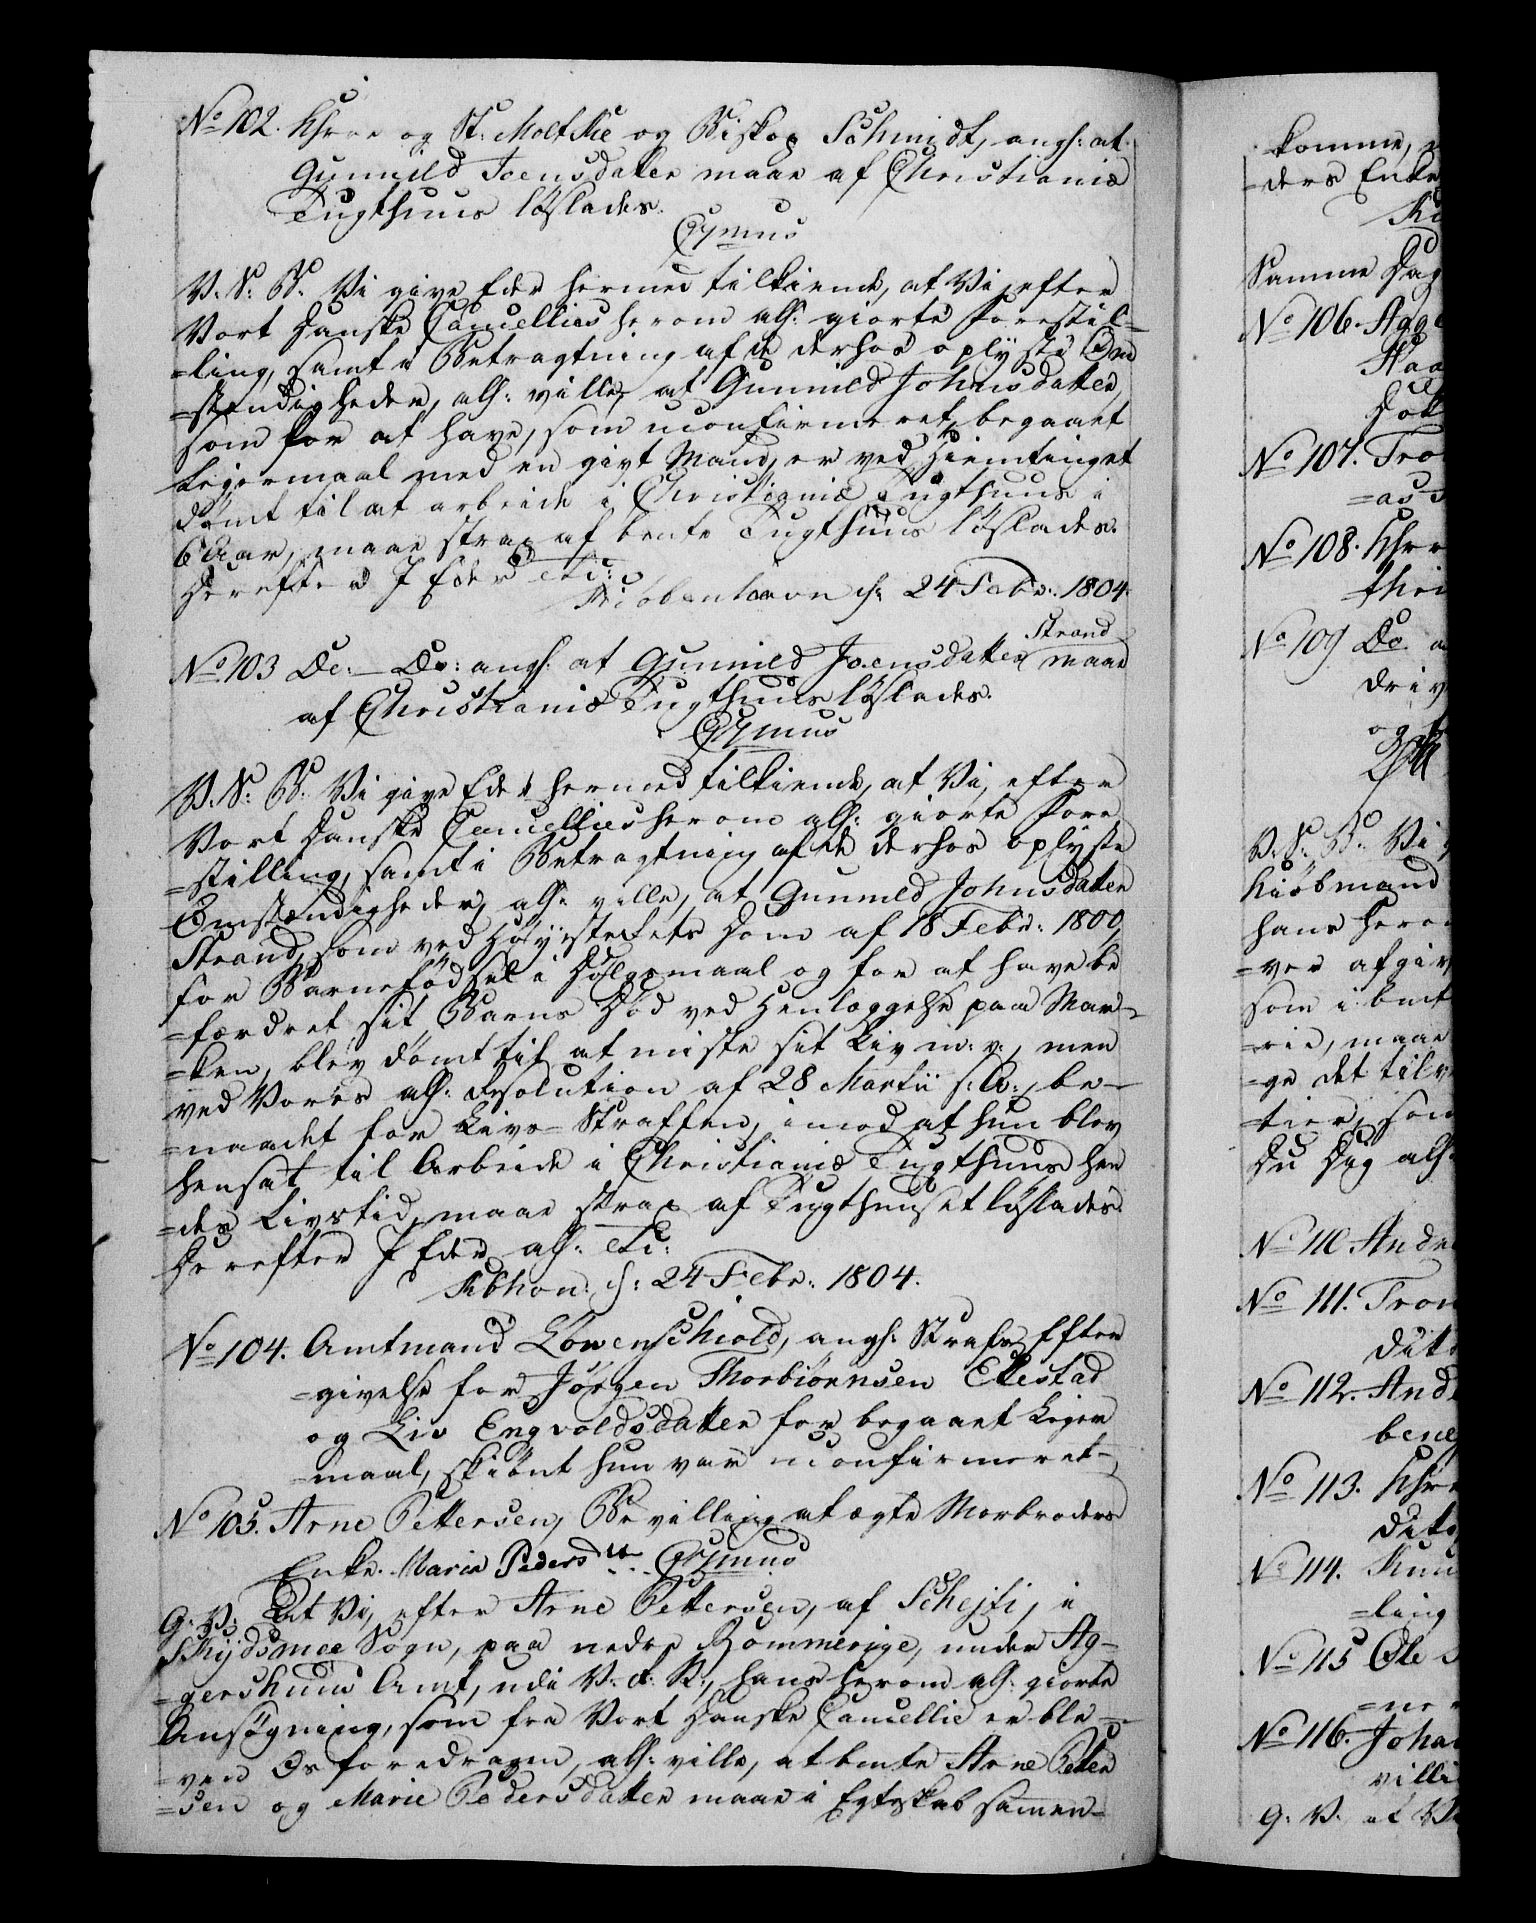 No 102. Khrre og St: Moltke og Biskop Schmidt, angl: at
Gunnild Joensdatter maae af Christianiæ
Tugthuus løslades.
V. S: B. Vi give Eder hermed tilkiende, at Vi, efter
Vort Danske Cancellies herom allr: giorte Forestil-
=ling, samt i Betragtning af de derhos oplyste Om
=stændigheder, allr: ville, at Gunnild Johnsdatter,
som for at have, som uconfirmeret, begaaet
Leiermaal med en givt Mand, er ved Hiemtinget
dømt til at arbeide i Christianiæ Tugthuus i
6 Aar, maae strax af bemte Tugthuus løslades.
Derefter I Eder etc:
Kiøbenhavn d: 24 Febr: 1804.
No 103 Do: – Do: angl: at Gunnild Joensdatter Strand maae
af Christianiæ Tugthuus løslades.
V. S: B. Vi give Eder hermed tilkiende, at Vi, efter
Vort Danske Cancellies herom allr: giorte Fore
=stilling, samt i Betragtning af de derhos oplyste
Omstændigheder, allr: ville, at Gunnild Johnsdatter
Strand, som ved Høyesterets Dom af 18 Febr: 1800,
for Barnefødsel i Dølgsmaal og for at have be
=fordret sit Barns Død ved Henlæggelse paa Mar-
=ken, blev dømt til at miste sit Liv m: v:, men
ved Vores allr: Resolution af 28 Martii s: A:, be-
=naadet for Livs-Straffen, imod at hun blev
hensat til Arbeide i Christianiæ Tugthuus hen
=des Livstid, maae strax af Tugthuuset løslades.
Derefter I Eder allr: etc:
Kbhvn: d: 24 Febr: 1804.
No 104. Amtmand Løwenschiold, angl: Strafs Efter
=givelse for Jørgen Thorbiørnsen Ettestad
og Liv Engvoldsdatter for begaaet Leier
=maal, skiønt hun var uconfirmeret.
No 105. Arne Pettersen, Bevilling at ægte Morbroders
Enke. Marie Pedersdtr
G: V: At Vi, efter Arne Pettersen, af Schejti, i
Schydsmoe Sogn, paa nedre Rommerige, under Ag-
=gershuus Amt, udi V: R: N:, hans herom allr: giorte
Ansøgning, som fra Vort Danske Cancellie er ble-
=ven Os foredragen, allr: ville, at bemte Arne Petter
=sen og Marie Pedersdatter maae i Egteskab sammen-
komme,
=ders Enke
Samme Dag
No 106.
No 107.
No 108. Khrr
No 109 Do
driv
V. S: B: Vi
Kiøbmand
hans herom
=ver afgiv
som i bemt
=rie, maae
=ge det tilv
=tier, som
Du Dig allr
No 110 Andr
No 111. Tron
Dito
No 112. And
bene
No 113. Khr
Dito
No 114. Knu
=ling
No 115 Ole
No 116. Joha
villi
G: V. at V